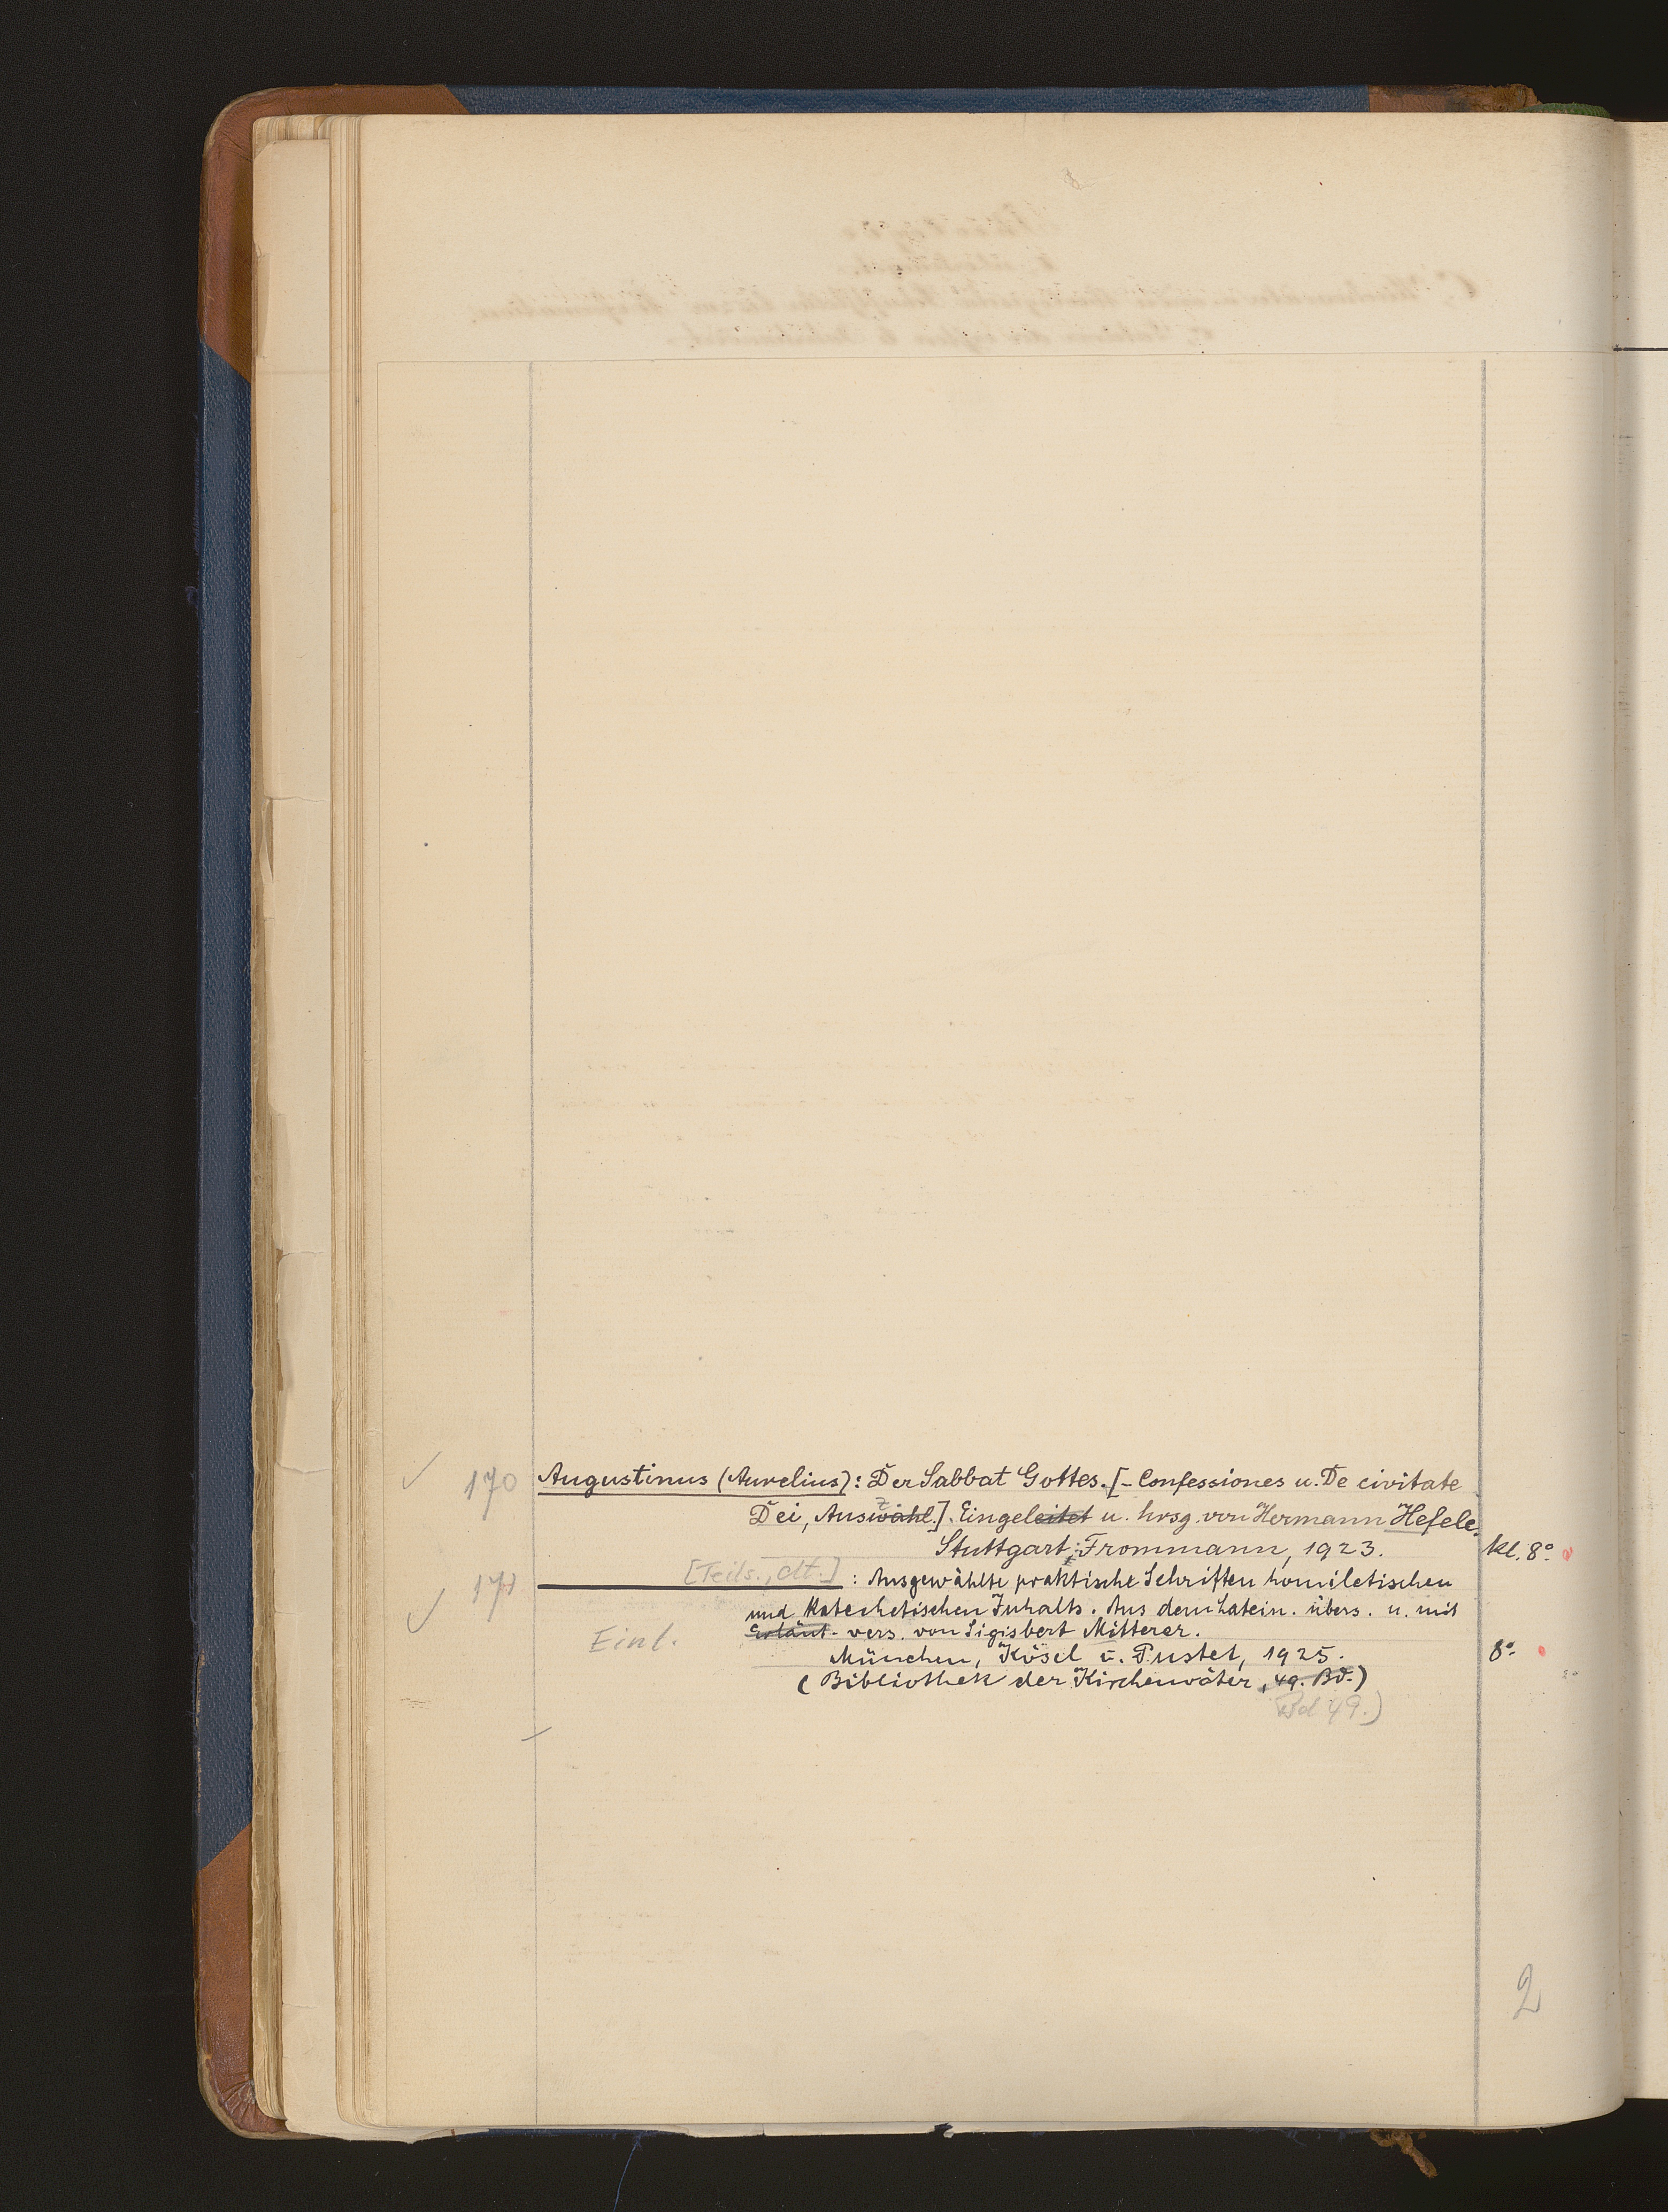 170 Augustinus (Aurelius): Der Sabbat Gottes. [- Confessiones u. De civitate
Dei, Auswahl.] Eingeleitet u. hrsg. von Hermann Hefele.
Stuttgart: Frommann, 1923. kl. 8°
171 [Teils., dt.] : Ausgewählte praktische Schriften homiletischen
und katechetischen Inhalts. Aus dem Latein. übers. u. mit
Einl. Erläut. vers. von Sigisbert Mitterer.
München, Kösel u. Pustet, 1925. 8°
(Bibliothek der Kirchenväter, 49. Bd.)
Bd 49.)
2